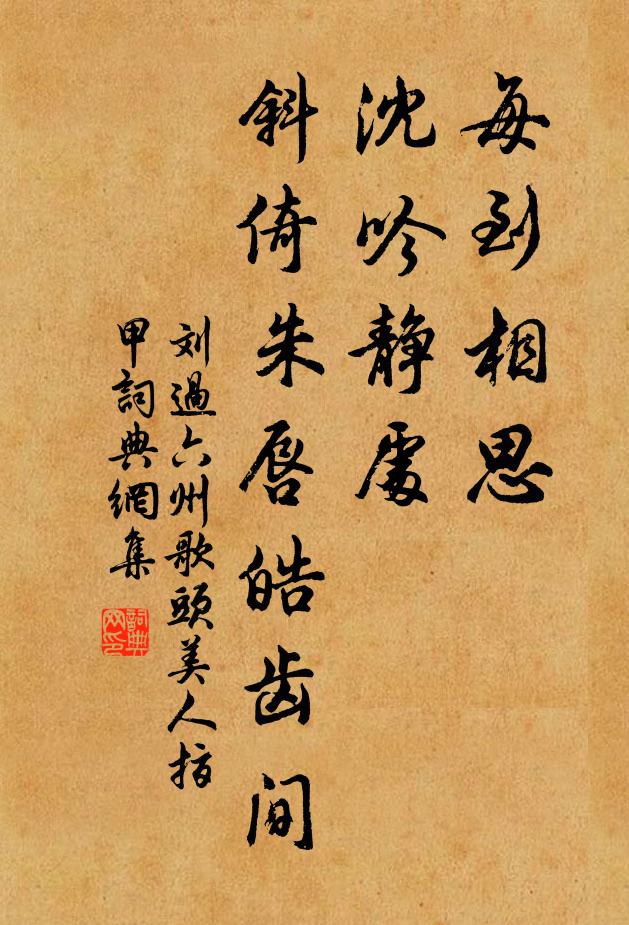 每到相思
沈吟静處
斜倚朱唇皓齿间
刘過六州歌頭美人指
甲詞典網集
詞典网印